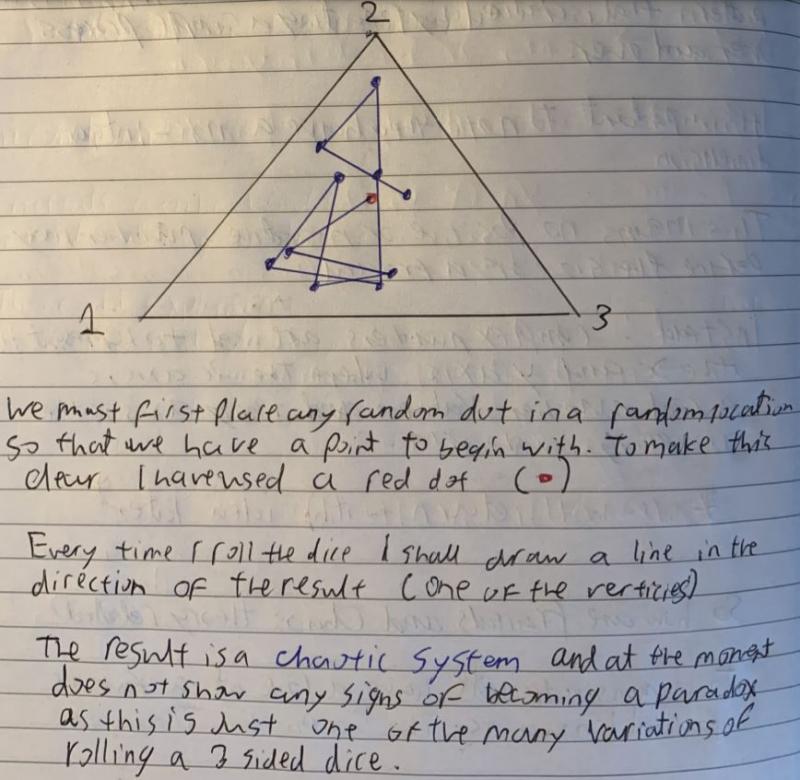 2
1
3
We must first place any random dot in a random location
so that we have a point to begin with. To make this
clear I have used a red dot (•)
Every time I roll the dice I shall draw a line in the
direction of the result (one of the verticies)
The result is a chaotic system and at the moment
does not show any signs of becoming a paradox
as this is just one of the many variations of
rolling a 3 sided dice.